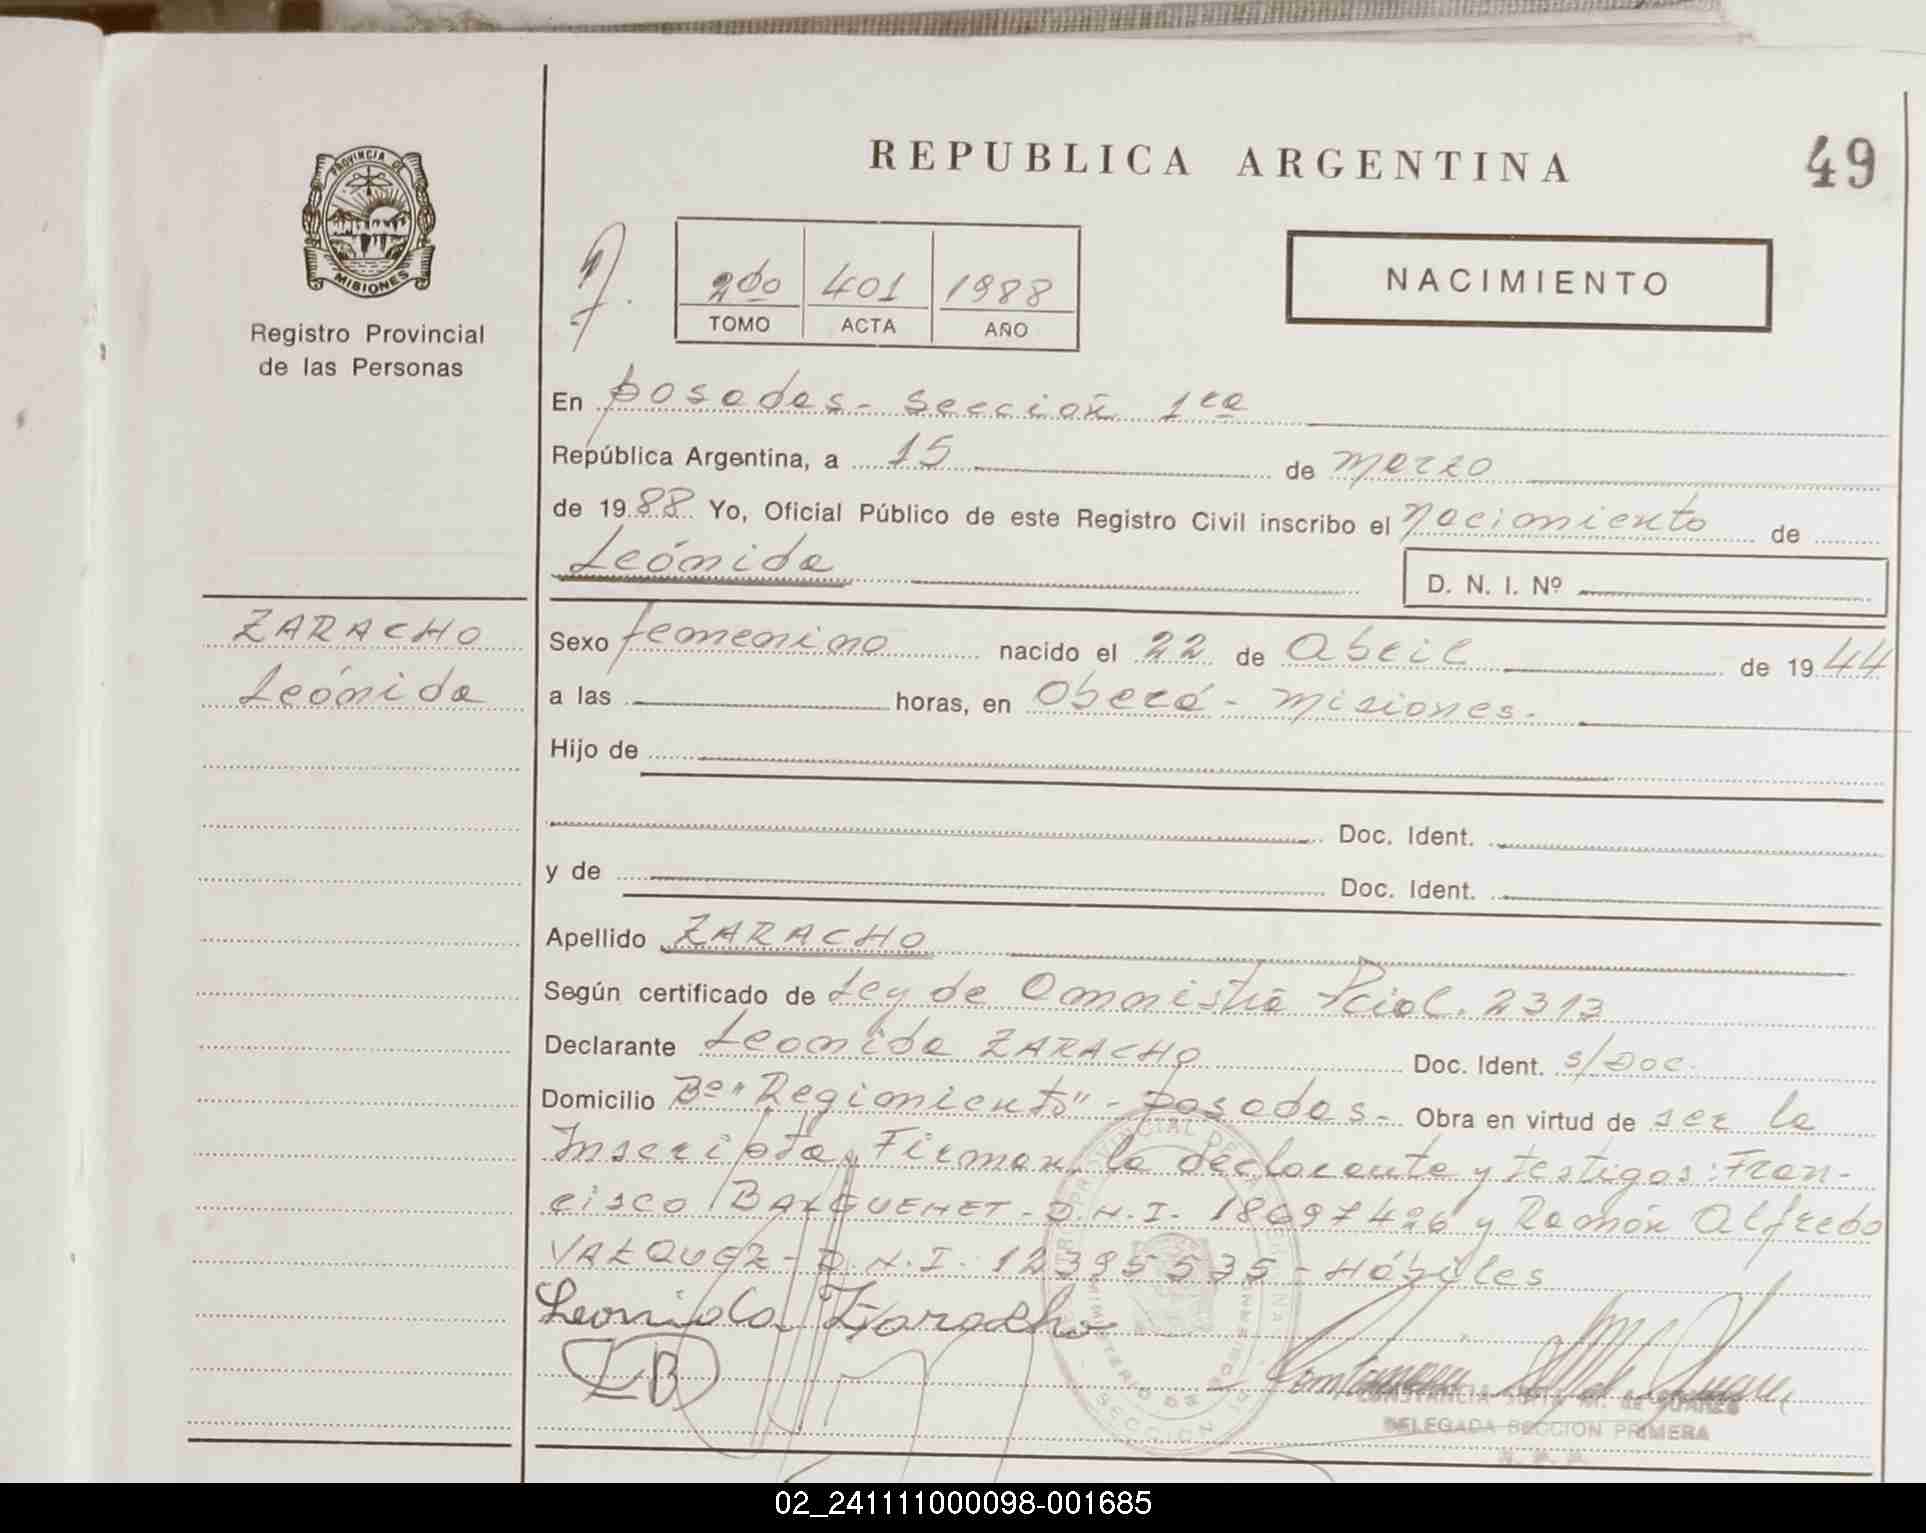 REPUBLICA ARGENTINA
49
PROVINCIA DE
MISIONES
Registro Provincial
de las Personas
2do 401 1988
TOMO ACTA AÑO
NACIMIENTO
En Posadas - Sección 1ra
República Argentina, a 15 de marzo
de 1988 Yo, Oficial Público de este Registro Civil inscribo el nacimiento de
Leónida
D. N. I. Nº
ZARACHO
Leónida
Sexo femenino nacido el 22 de Abril de 1944
a las horas, en Oberá - Misiones.
Hijo de
Doc. Ident.
y de Doc. Ident.
Apellido ZARACHO
Según certificado de Ley de Amnistía Pcial. 2313
Declarante Leonida ZARACHO Doc. Ident. s/Doc.
Domicilio Bº "Regimiento" - Posadas - Obra en virtud de ser la
Inscripta, Firman la declarante y testigos: Fran-
cisco - D.N.I. 18697426 y Ramón Alfredo
VAZQUEZ - D.N.I. 12395535 - Hábiles
Leonida Zaracho
CONSTANCIA M. de SUAREZ
DELEGADA SECCION PRIMERA
02_241111000098-001685